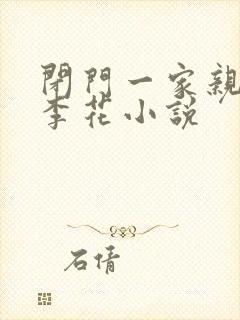 閉門一家親
李花小說
石倩